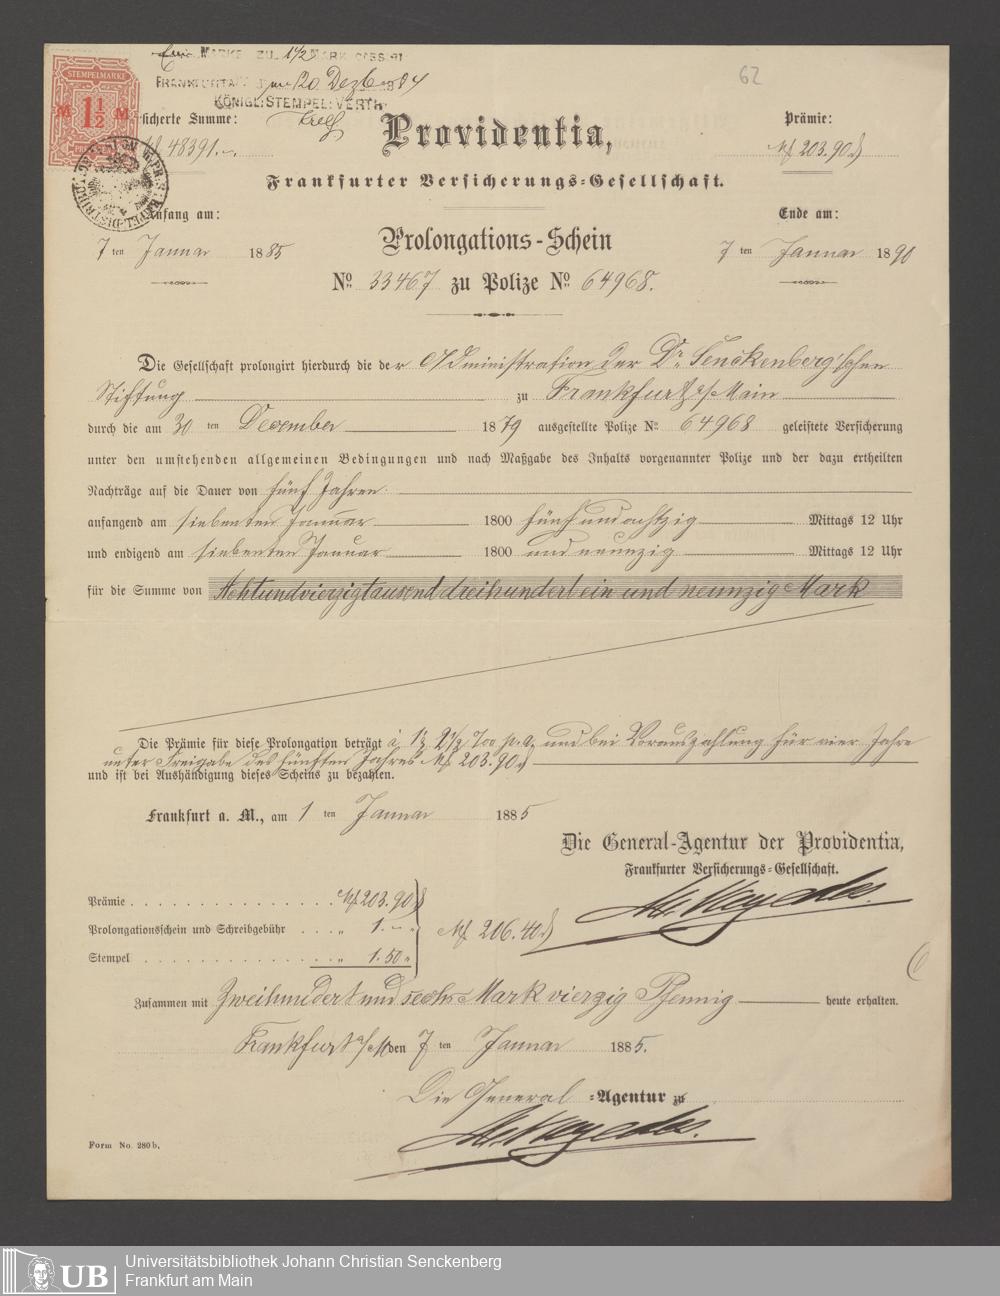 Eine MARKE ZU 1 1/2 MARK CASSIRT
FRANKFURT A/M am 20 Dezb 1884
KÖNIGL: STEMPEL: VERTH:
62
STEMPELMARKE
M 1 1/2 M
Versicherte Summe:
M 48391.–.
Providentia,
Prämie:
M 203.90 ₰
Frankfurter Versicherungs-Gesellschaft.
Anfang am:
7 ten Januar 1885
Prolongations-Schein
Ende am:
7 ten Januar 1890
No. 33467 zu Polize No. 64968.
Die Gesellschaft prolongirt hierdurch die der Administration der Dr. Senckenberg'schen
Stiftung zu Frankfurt a/Main
durch die am 30 ten December 1879 ausgestellte Polize No. 64968 geleistete Versicherung
unter den umstehenden allgemeinen Bedingungen und nach Maßgabe des Inhalts vorgenannter Polize und der dazu ertheilten
Nachträge auf die Dauer von fünf Jahren
anfangend am siebenten Januar 1800 fünf und achtzig Mittags 12 Uhr
und endigend am siebenten Januar 1800 und neunzig Mittags 12 Uhr
für die Summe von Achtundvierzigtausend dreihundert ein und neunzig Mark
Die Prämie für diese Prolongation beträgt à ‰ p. a. und bei Vorauszahlung für vier Jahre
unter Freigabe des fünften Jahres M 203.90 ₰
und ist bei Aushändigung dieses Scheins zu bezahlen.
Frankfurt a. M., am 1 ten Januar 1885
Die General-Agentur der Providentia,
Frankfurter Versicherungs-Gesellschaft.
Prämie M 203.90 ₰
Prolongationsschein und Schreibgebühr „ 1.– „
M 206.40 ₰
Stempel „ 1.50 „
Zusammen mit Zweihundert und sechs Mark vierzig Pfennig heute erhalten.
Frankfurt a/M den 7 ten Januar 1885.
Die General-Agentur zu
Form No. 280b.
UB
Universitätsbibliothek Johann Christian Senckenberg
Frankfurt am Main